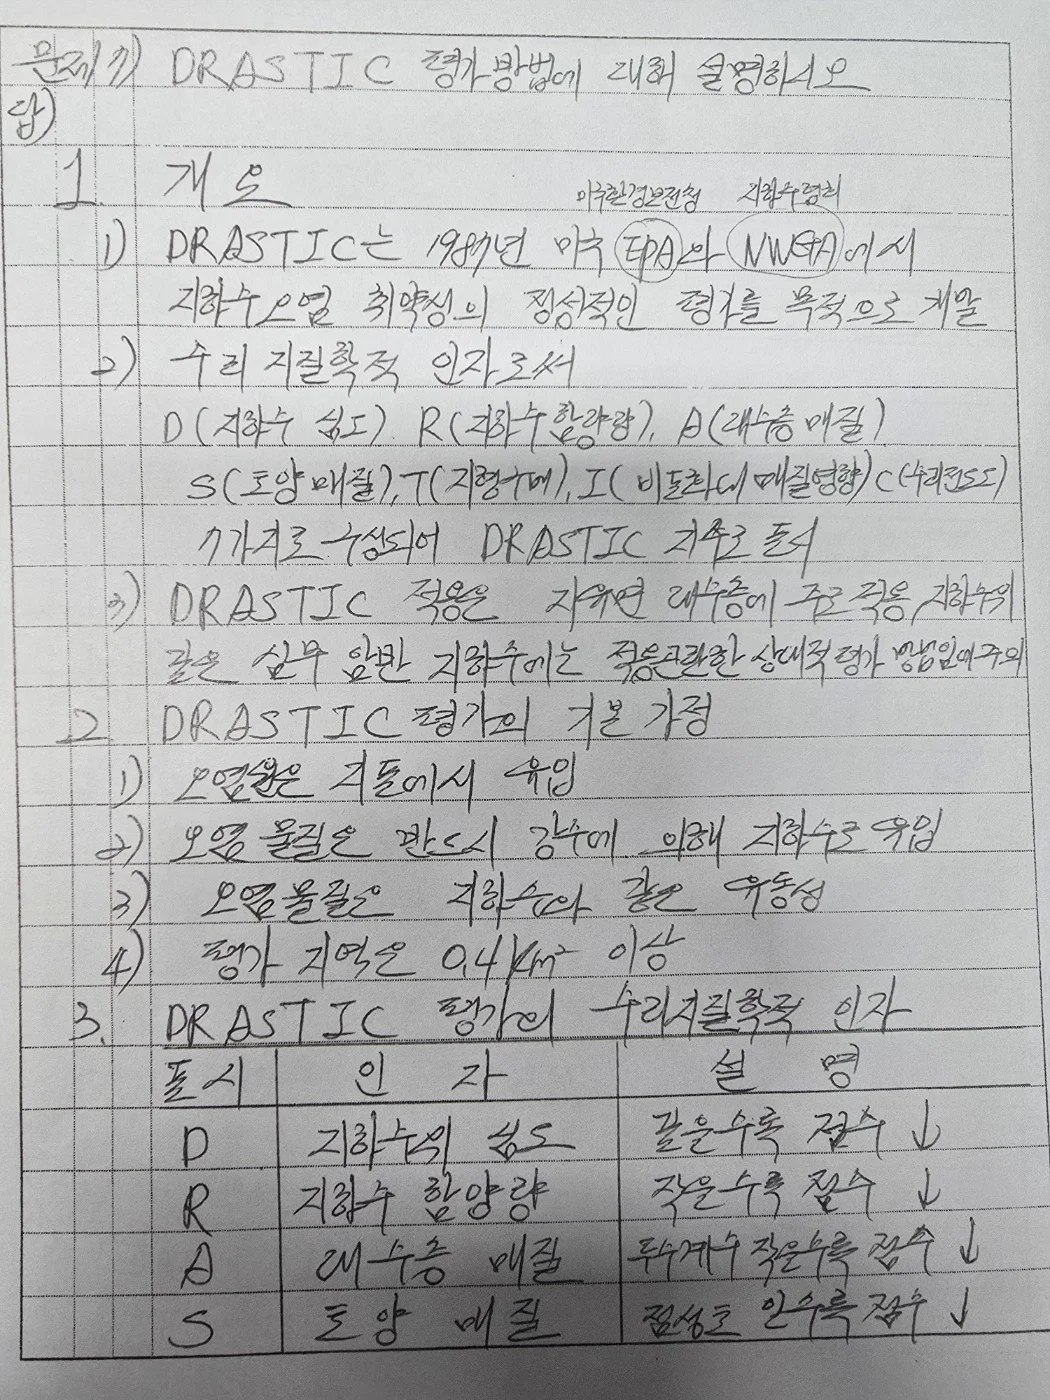 문제 7) DRASTIC 평가방법에 대해 설명하시오
답)
1. 개요
미국환경보전청 지하수협회
1) DRASTIC는 1987년 미국 EPA와 NWGA에서
지하수오염 취약성의 정성적인 평가를 목적으로 개발
2) 수리지질학적 인자로써
D(지하수 심도), R(지하수함양량), A(대수층 매질)
S(토양매질), T(지형구배), I(비포화대 매질영향) C(수리전도도)
7가지로 구성되어 DRASTIC 지수로 표시
3) DRASTIC 적용은 자유면 대수층에 주로 적용, 지하수위
깊은 심부 암반 지하수에는 적용곤란한 상대적 평가 방법임에 주의
2. DRASTIC 평가의 기본 가정
1) 오염물은 지표에서 유입
2) 오염물질은 반드시 강수에 의해 지하수로 유입
3) 오염물질은 지하수와 같은 유동성
4) 평가 지역은 0.4km² 이상
3. DRASTIC 평가의 수리지질학적 인자
표시 인자 설명
D 지하수위 심도 깊은수록 점수 ↓
R 지하수 함양량 작은수록 점수 ↓
A 대수층 매질 투수계수 작은수록 점수 ↓
S 토양 매질 점성토 인수록 점수 ↓